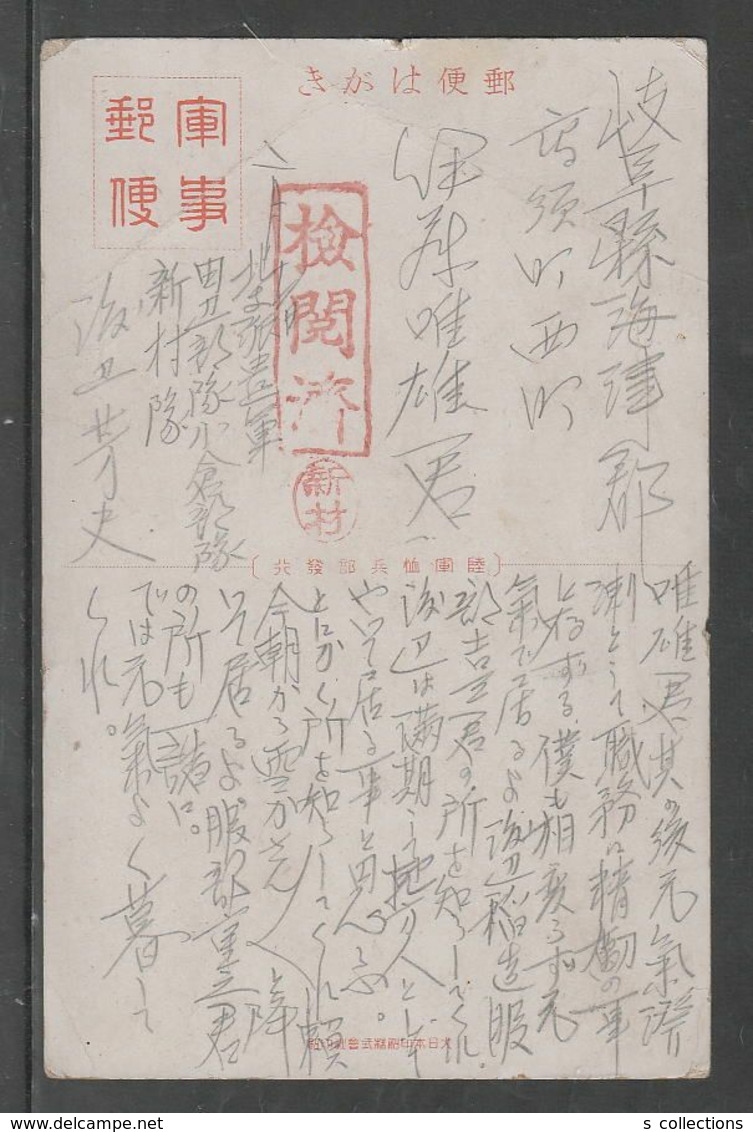 郵便はがき
軍事
郵便
岐阜縣海津郡
高須町西町
伊藤唯雄君
検閲済
新村
北支張吉軍
田上部隊小倉部隊
新村隊
渡辺芳史
〔陸軍恤兵部發行〕
唯雄君其の後元氣溌
溂として職務に精勤の事
と存ずる僕も相変らず元
氣で居るよ渡辺稲造服
部吉三君の所を知らしてくれ
渡辺は満期して地方人として
やって居る事と思ふ。
とにかく所を知らしてくれ頼
今朝から雪がさんさんと降
いて居るよ服部重之君
の所も一諸に。
では元氣よく暮して
くれ。
大日本印刷株式會社印刷
s collections